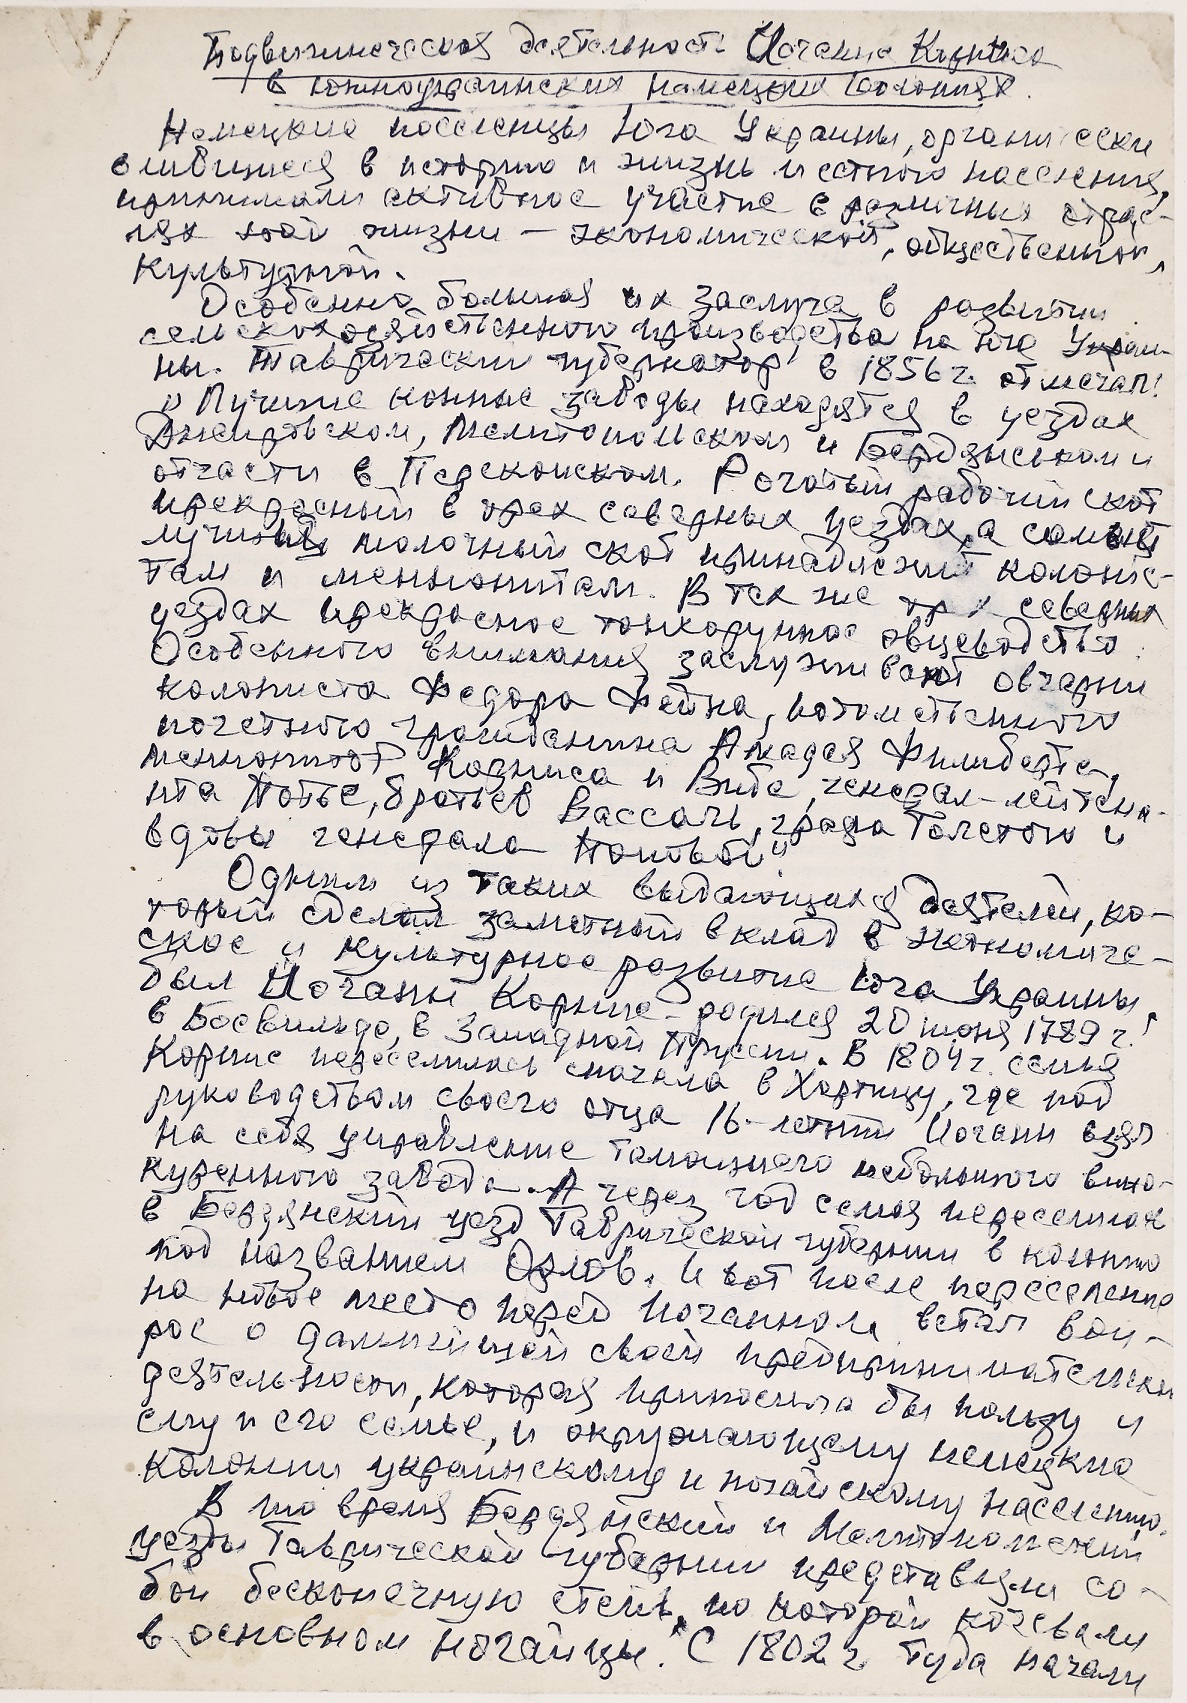 Подвижническая деятельность Иоганна Корниса
в южноукраинских немецких колониях.
Немецкие поселенцы Юга Украины, органически
влившиеся в историю и жизнь местного населения,
принимали активное участие в различных отрас-
лях этой жизни – экономической, общественной,
культурной.
Особенно большая их заслуга в развитии
сельскохозяйственного производства на Юге Украи-
ны. Таврический губернатор в 1856 г. отмечал:
"Лучшие конные заводы находятся в уездах
Днепровском, Мелитопольском и Бердянском и
отчасти в Перекопском. Рогатый рабочий скот
прекрасный в трех северных уездах, а самый
лучший молочный скот принадлежит колонис-
там и меннонитам. В тех же трех северных
уездах прекрасное тонкорунное овцеводство.
Особенного внимания заслуживают овчарни
колониста Федора Фейна, потомственного
почетного гражданина Амадея Филиберта,
меннонитов Корниса и Вибе, генерал-лейтена-
нта Потье, братьев Вассаль, графа Толстого и
вдовы генерала Поповой"
Одним из таких выдающихся деятелей, ко-
торый сделал заметный вклад в экономиче-
ское и культурное развитие Юга Украины,
был Иоганн Корнис – родился 20 июня 1789 г.
в Боевильде, в Западной Пруссии. В 1804 г. семья
Корнис переселилась сначала в Хортицу, где под
руководством своего отца 16-летний Иоганн взял
на себя управление тамошнего небольшого вино-
куренного завода. А через год семья переселилась
в Бердянский уезд Таврической губернии в колонию
под названием Орлов. И вот после переселения
на новое место перед Иоганном встал воп-
рос о дальнейшей своей предпринимательской
деятельности, которая приносила бы пользу и
ему и его семье, и окружающему немецкие
колонии украинскому и ногайскому населению.
В то время Бердянский и Мелитопольский
уезды Таврической губернии представляли со-
бой бесконечную степь, по которой кочевали
в основном ногайцы. С 1802 г. туда начали